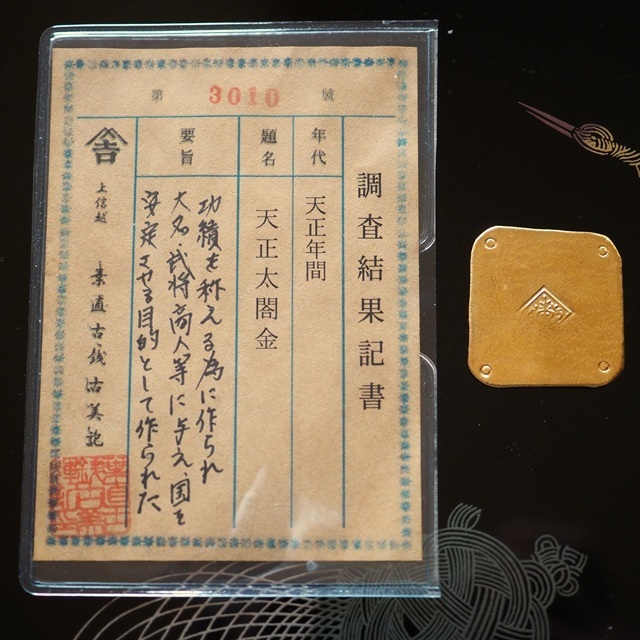 第 3010 號
調査結果記書
年代
天正年間
題名
天正太閤金
要旨
功績を称える為に作られ
大名・武将商人等に与え、国を
安定させる目的として作られた
上信越
古銭